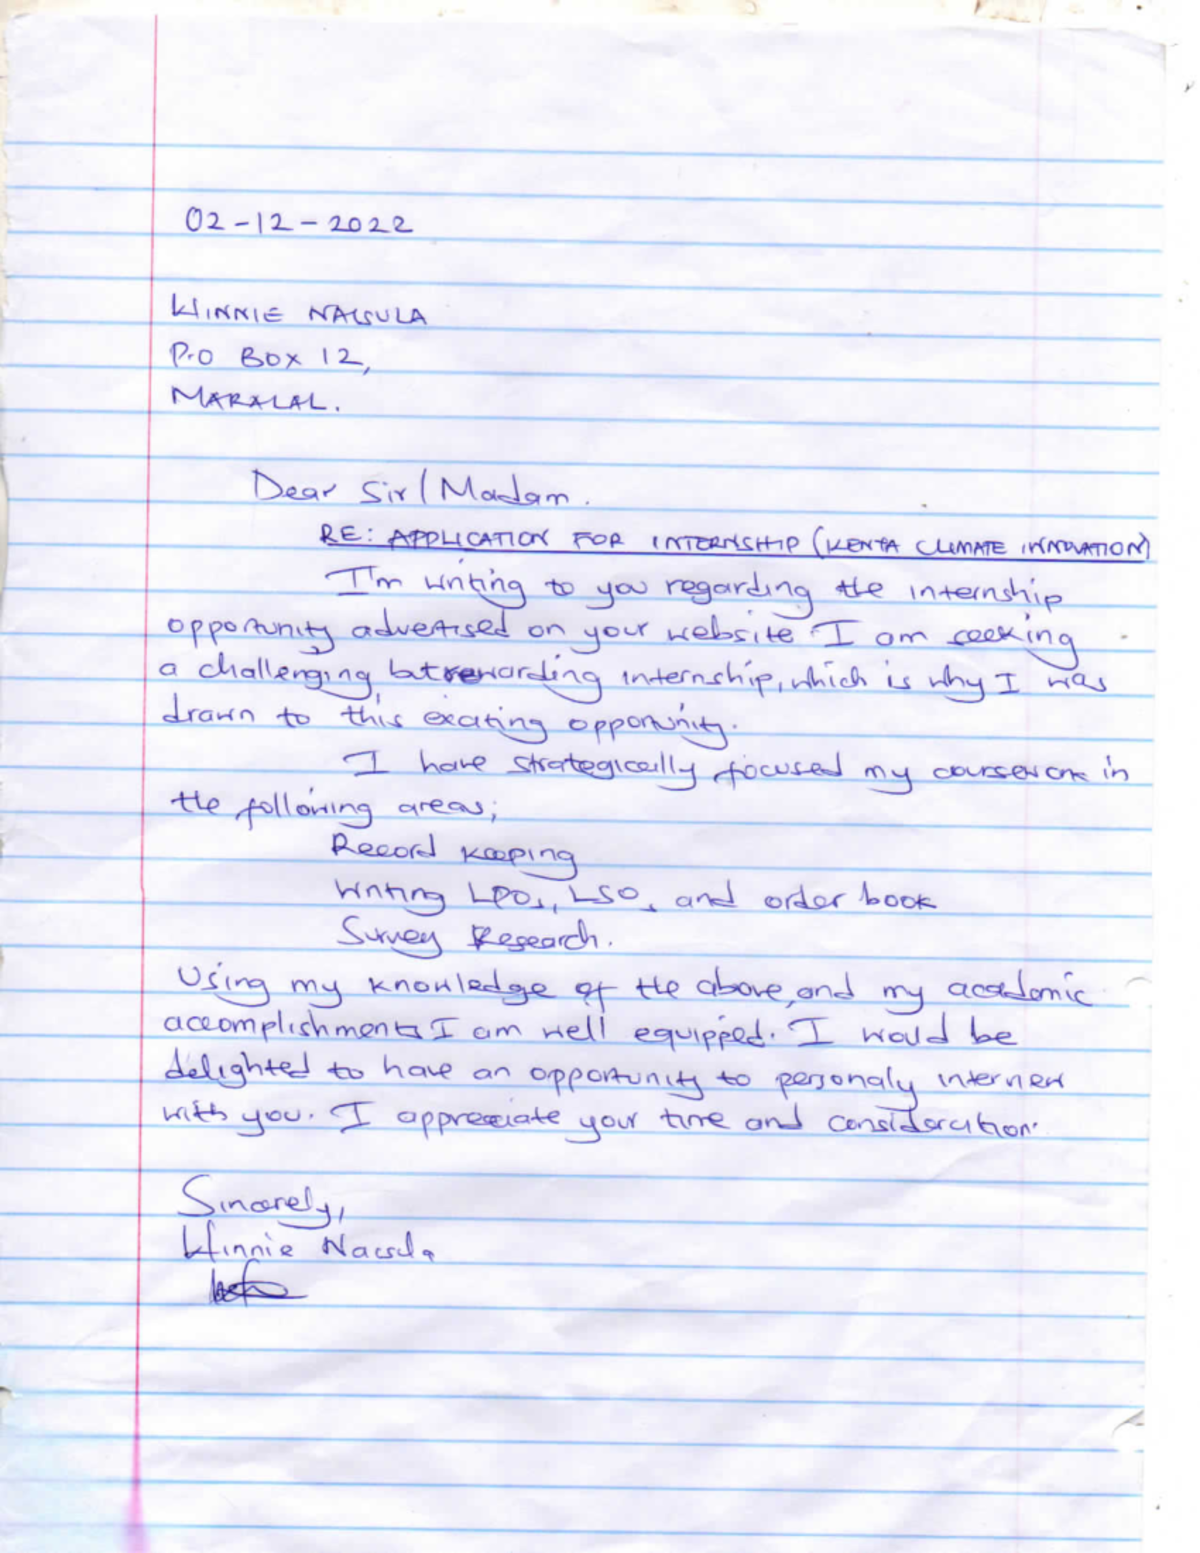 02-12-2022
WINNIE
P.O BOX 12,
MARALAL.
Dear Sir/Madam.
RE: APPLICATION FOR INTERNSHIP (KENYA CLIMATE INNOVATION)
I'm writing to you regarding the internship
opportunity advertised on your website I am seeking
a challenging but rewarding internship, which is why I was
drawn to this exciting opportunity.
I have strategically focused my coursework in
the following areas;
Record keeping
Writing LPOs, LSOs and order book
Survey Research.
Using my knowledge of the above, and my academic
accomplishments I am well equipped. I would be
delighted to have an opportunity to personaly interview
with you. I appreciate your time and consideration.
Sincerely,
Winnie